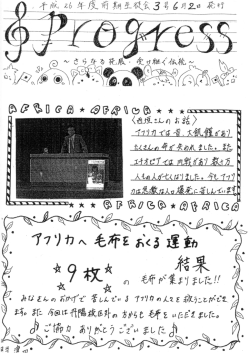 平成26年度前期生徒会3号6月2日発行
Progress
～さらなる発展～受け継ぐ伝統～
AFRICA★AFRICA★
〈西垣さんのお話〉
アフリカでは昔、大飢饉があり
たくさんの命が失われました。また
エチオピアでは内戦があり数々万
人もの人が亡くなりました。今もアフリ
カは悪徴な人口爆発に苦しんでいます
AFRICA★AFRICA
アフリカへ毛布をおくる運動
結果
☆9枚☆の毛布が集まりました!!
みなさんのおかげで苦しんでいるアフリカの人々を救うことができ
ます。また、今回は
の方からも毛布をいただきました。
ご協力ありがとうございました